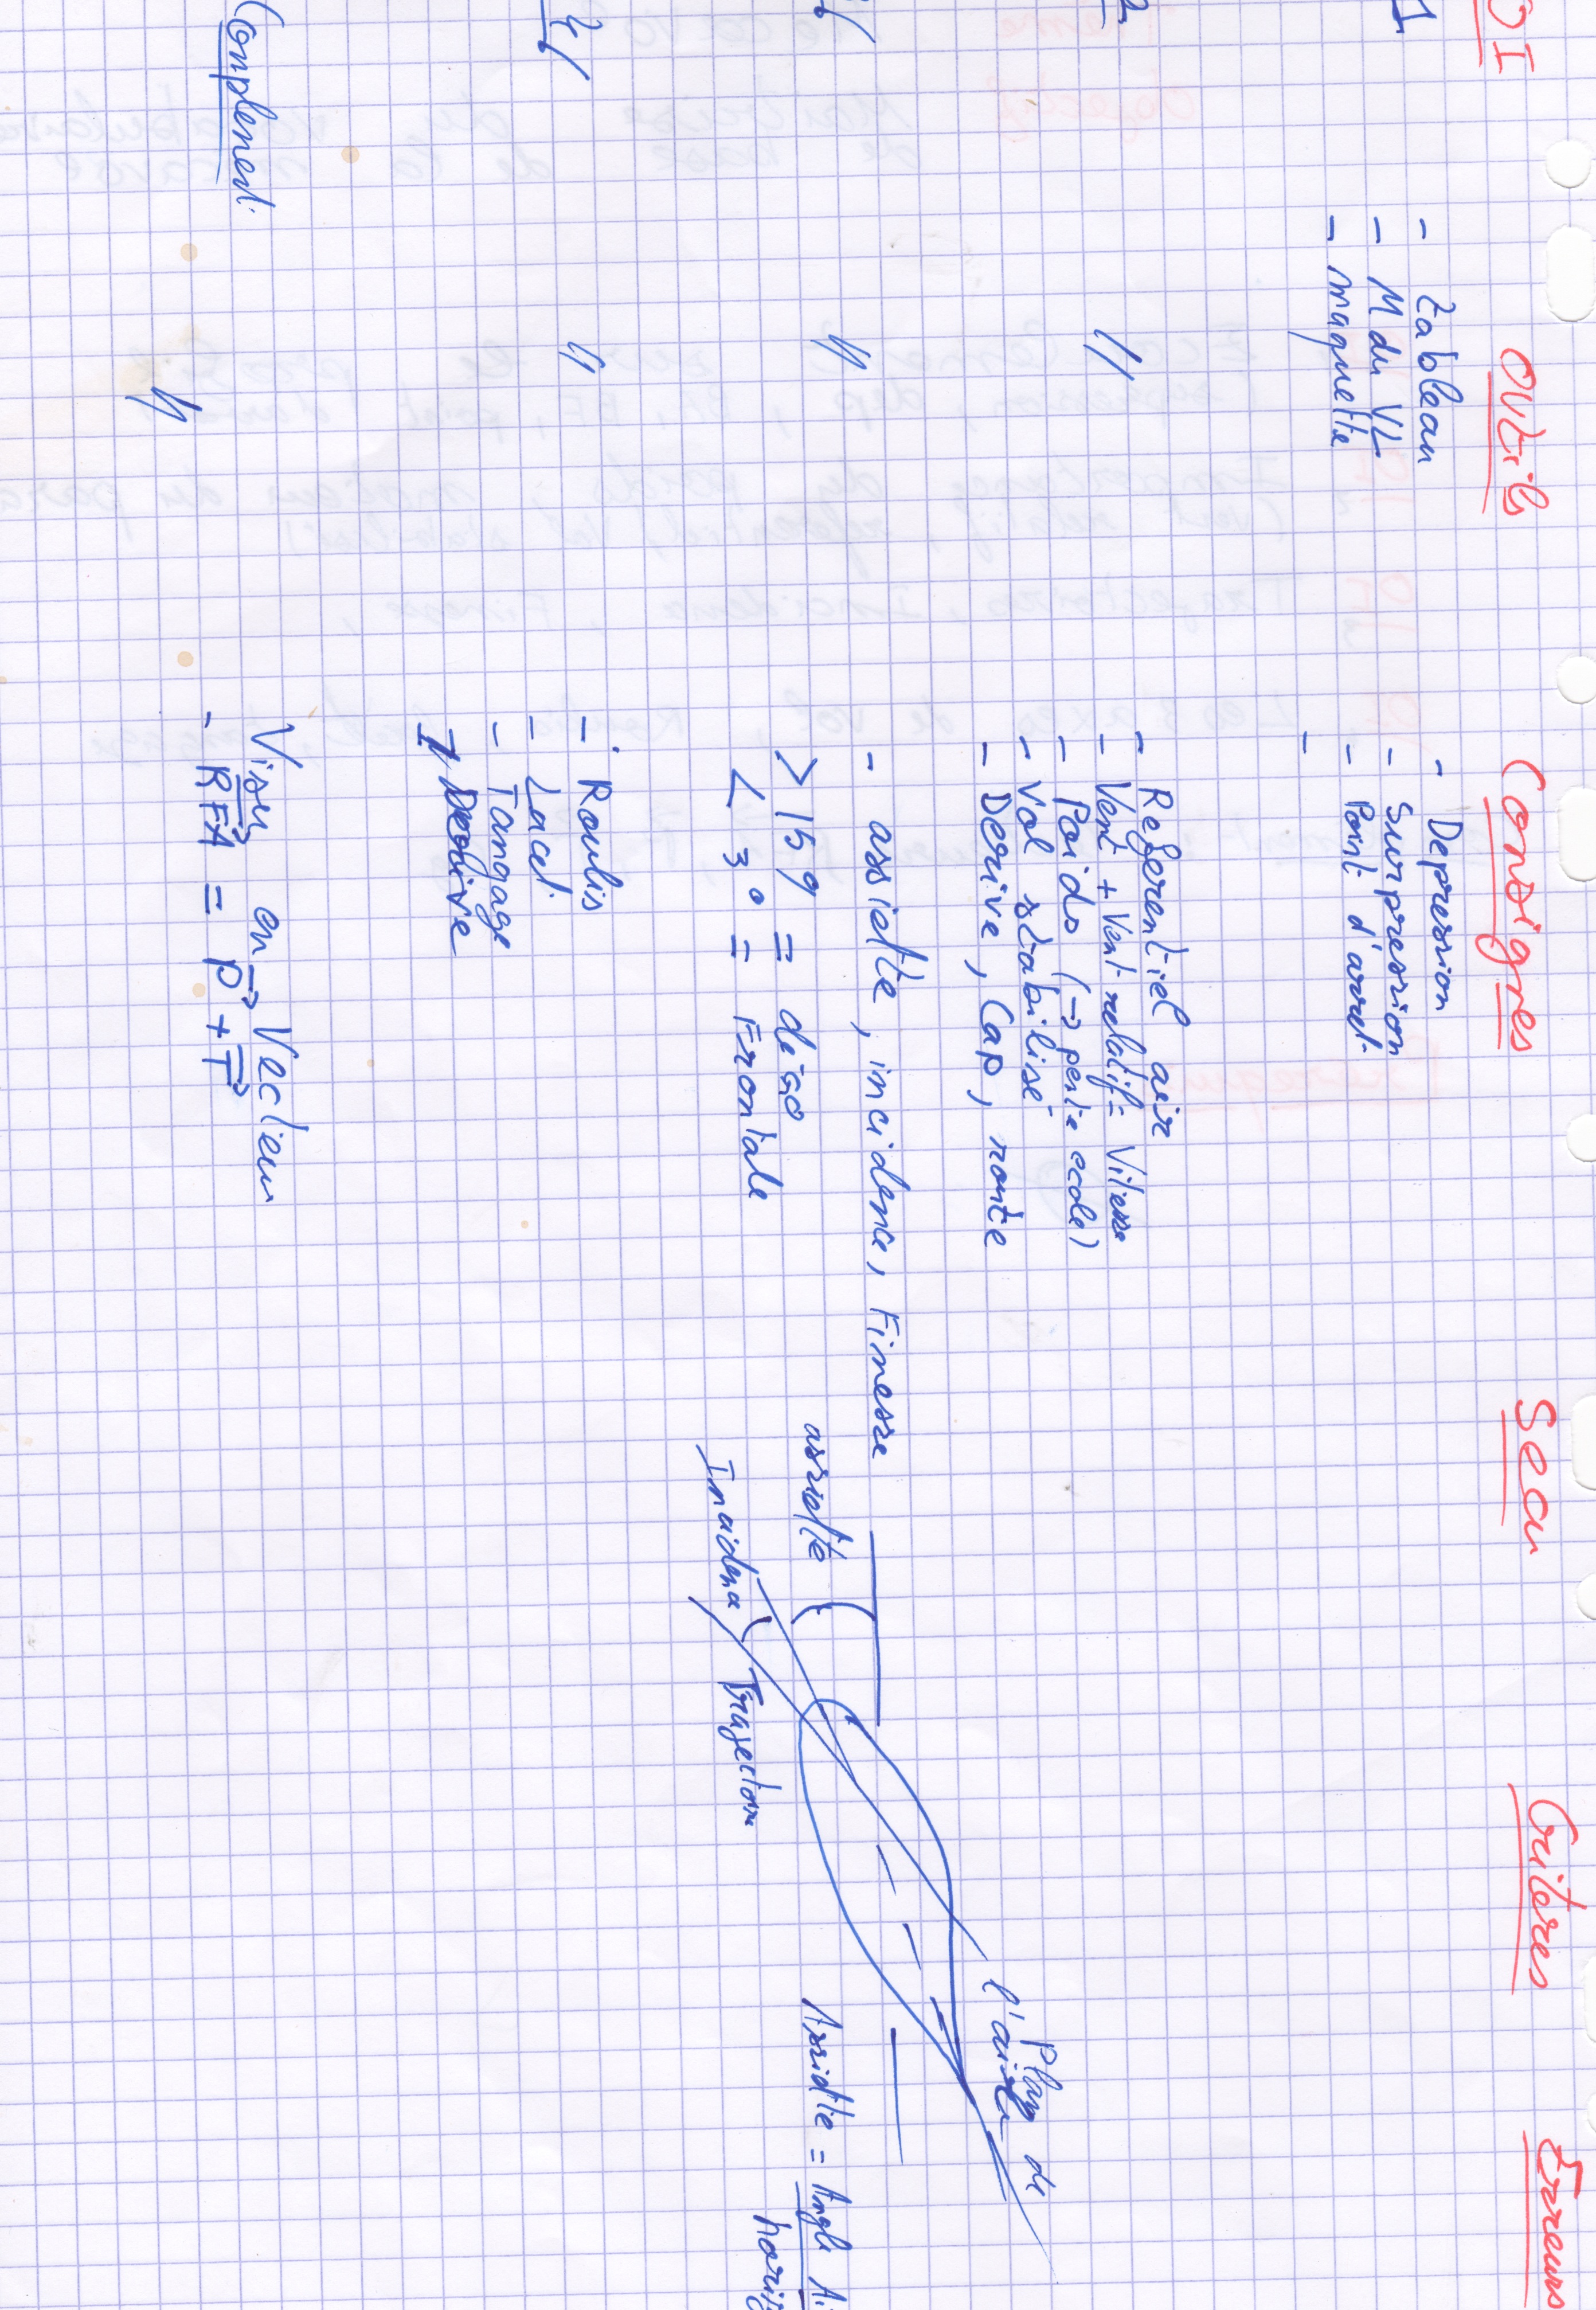 OI Outils Consignes Secu Criteres Erreurs
1
- Tableau
- M du VL
- maquette
- Depression
- Surpression
- Point d'arret
-
2
//
- Referentiel air
- Vent + Vent relatif = Vitesse
- Poids (→ pente ecole)
- Vol stabilisé
- Derive, Cap, route
//
- assiette, incidence, Finesse
> 15° = décro
< 3° = Frontale
Plan de
l'aile
assiette
Incidence
Trajectoire
Assiette = Angle
4/
//
- Roulis
- Lacet
- Tangage
Complement.
//
Visu en Vecteur
- RFA = P + T